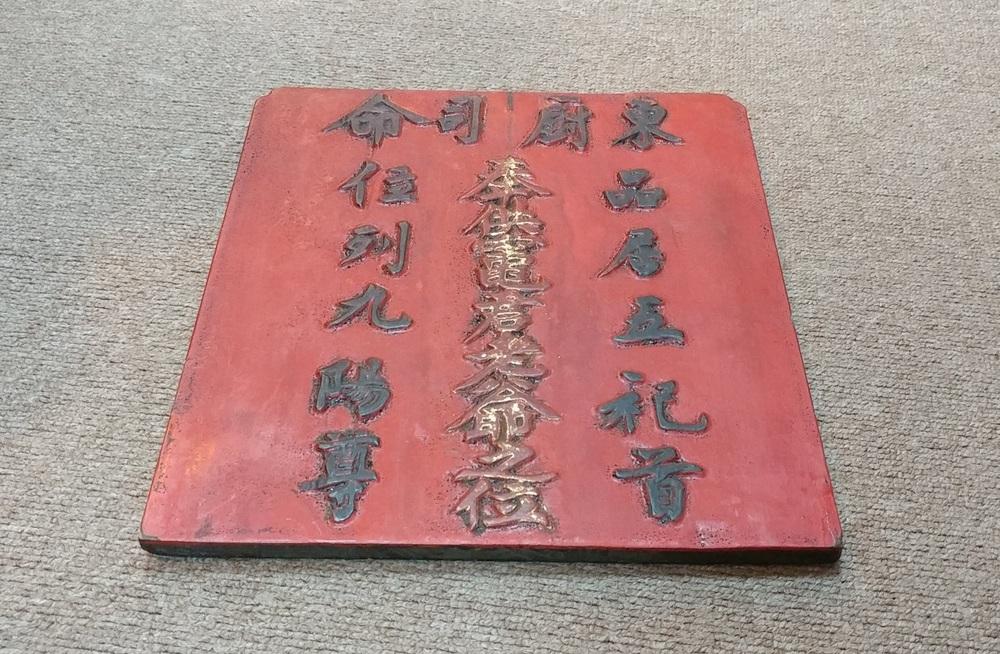 東厨司命
品居五祀首
奉供竈君老爺之位
位列九陽尊